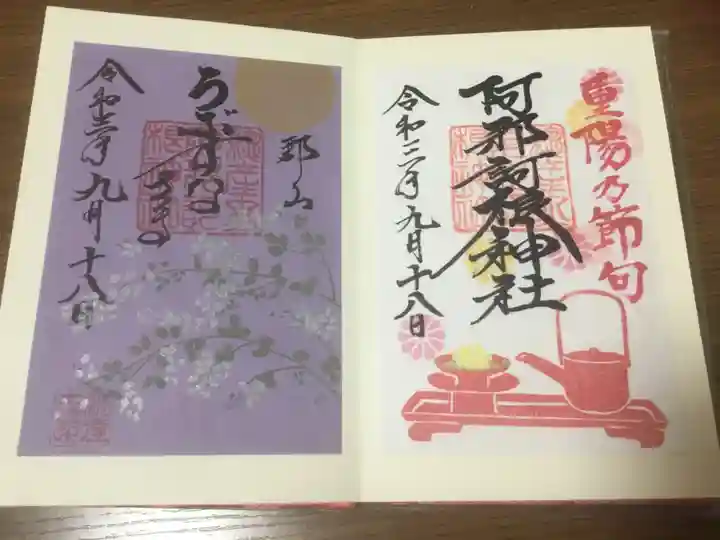 重陽乃節句
阿邪訶根神社
令和三年九月十八日
郡山
うぶすな
令和三年九月十八日